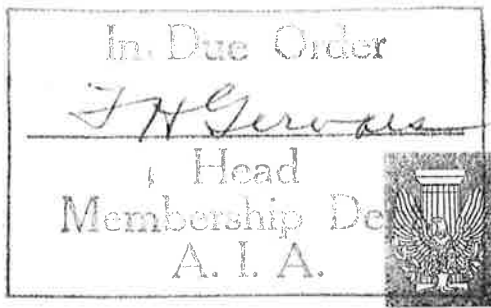 In Due Order
F H Gervais
Head
Membership De
A. I. A.